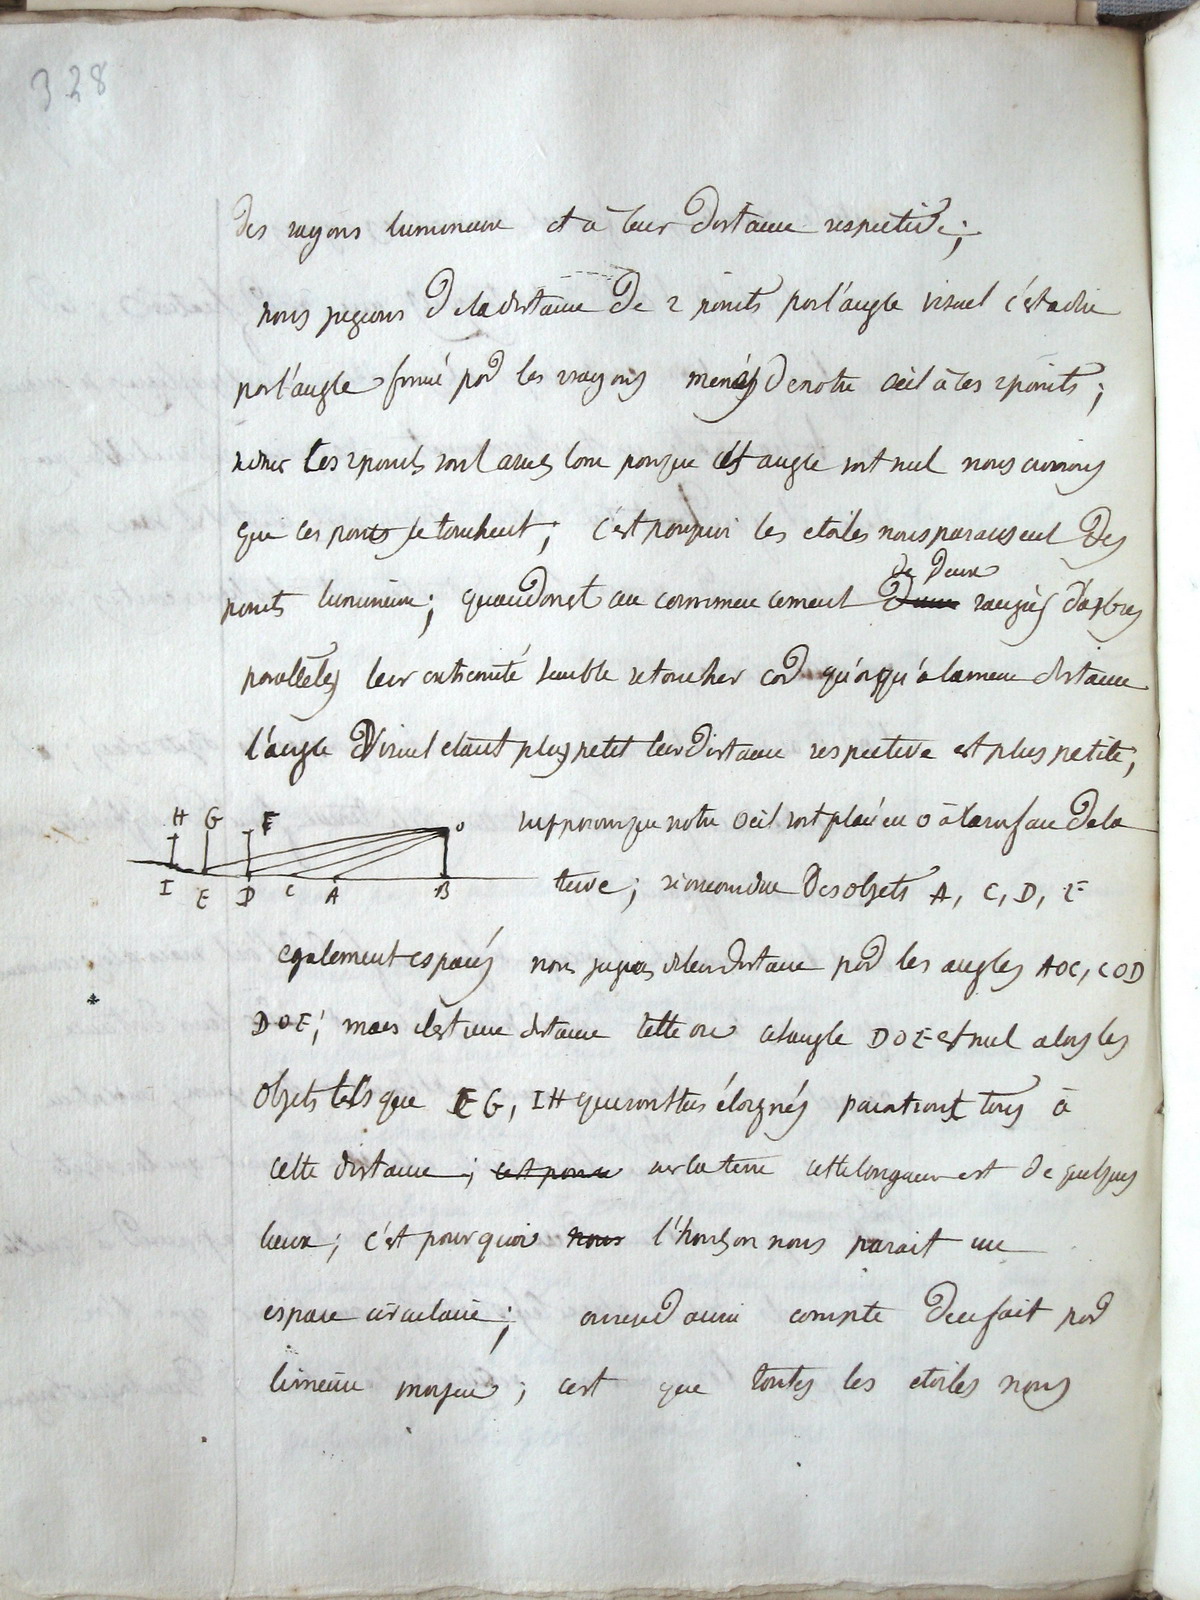 328
des rayons lumineux et à leur distance respective;
nous jugeons de la distance de 2 points par l'angle visuel c'est adire
par l'angle formé par les rayons menés de notre œil à ces 2 points;
si ces 2 points sont assez loin pour que cet angle soit nul nous croirons
que ces points se touchent; c'est pourquoi les etoiles nous paraissent des
de deux
points lumineux; quand on est au commencement rangées d'arbres
paralleles leur extremité semble se toucher car quoiqu'à la meme distance
l'angle visuel etant plus petit leur distance respective est plus petite;
H G F O
supposons que notre oeil soit placé en O à la surface de la
I E D C A B
terre; si on considere des objets A, C, D, E
egalement espacés nous jugeons de leur distance par les angles AOC, COD
DOE; mais il est une distance telle ou cet angle DOE est nul alors les
objets tels que EG, IH qui sont tres éloignés paraitront tous à
cette distance; sur la terre cette longueur est de quelques
lieux; c'est pourquoi nous l'horison nous parait un
espace circulaire; on rend aussi compte de ce fait par
le meme moyen; c'est que toutes les etoiles nous